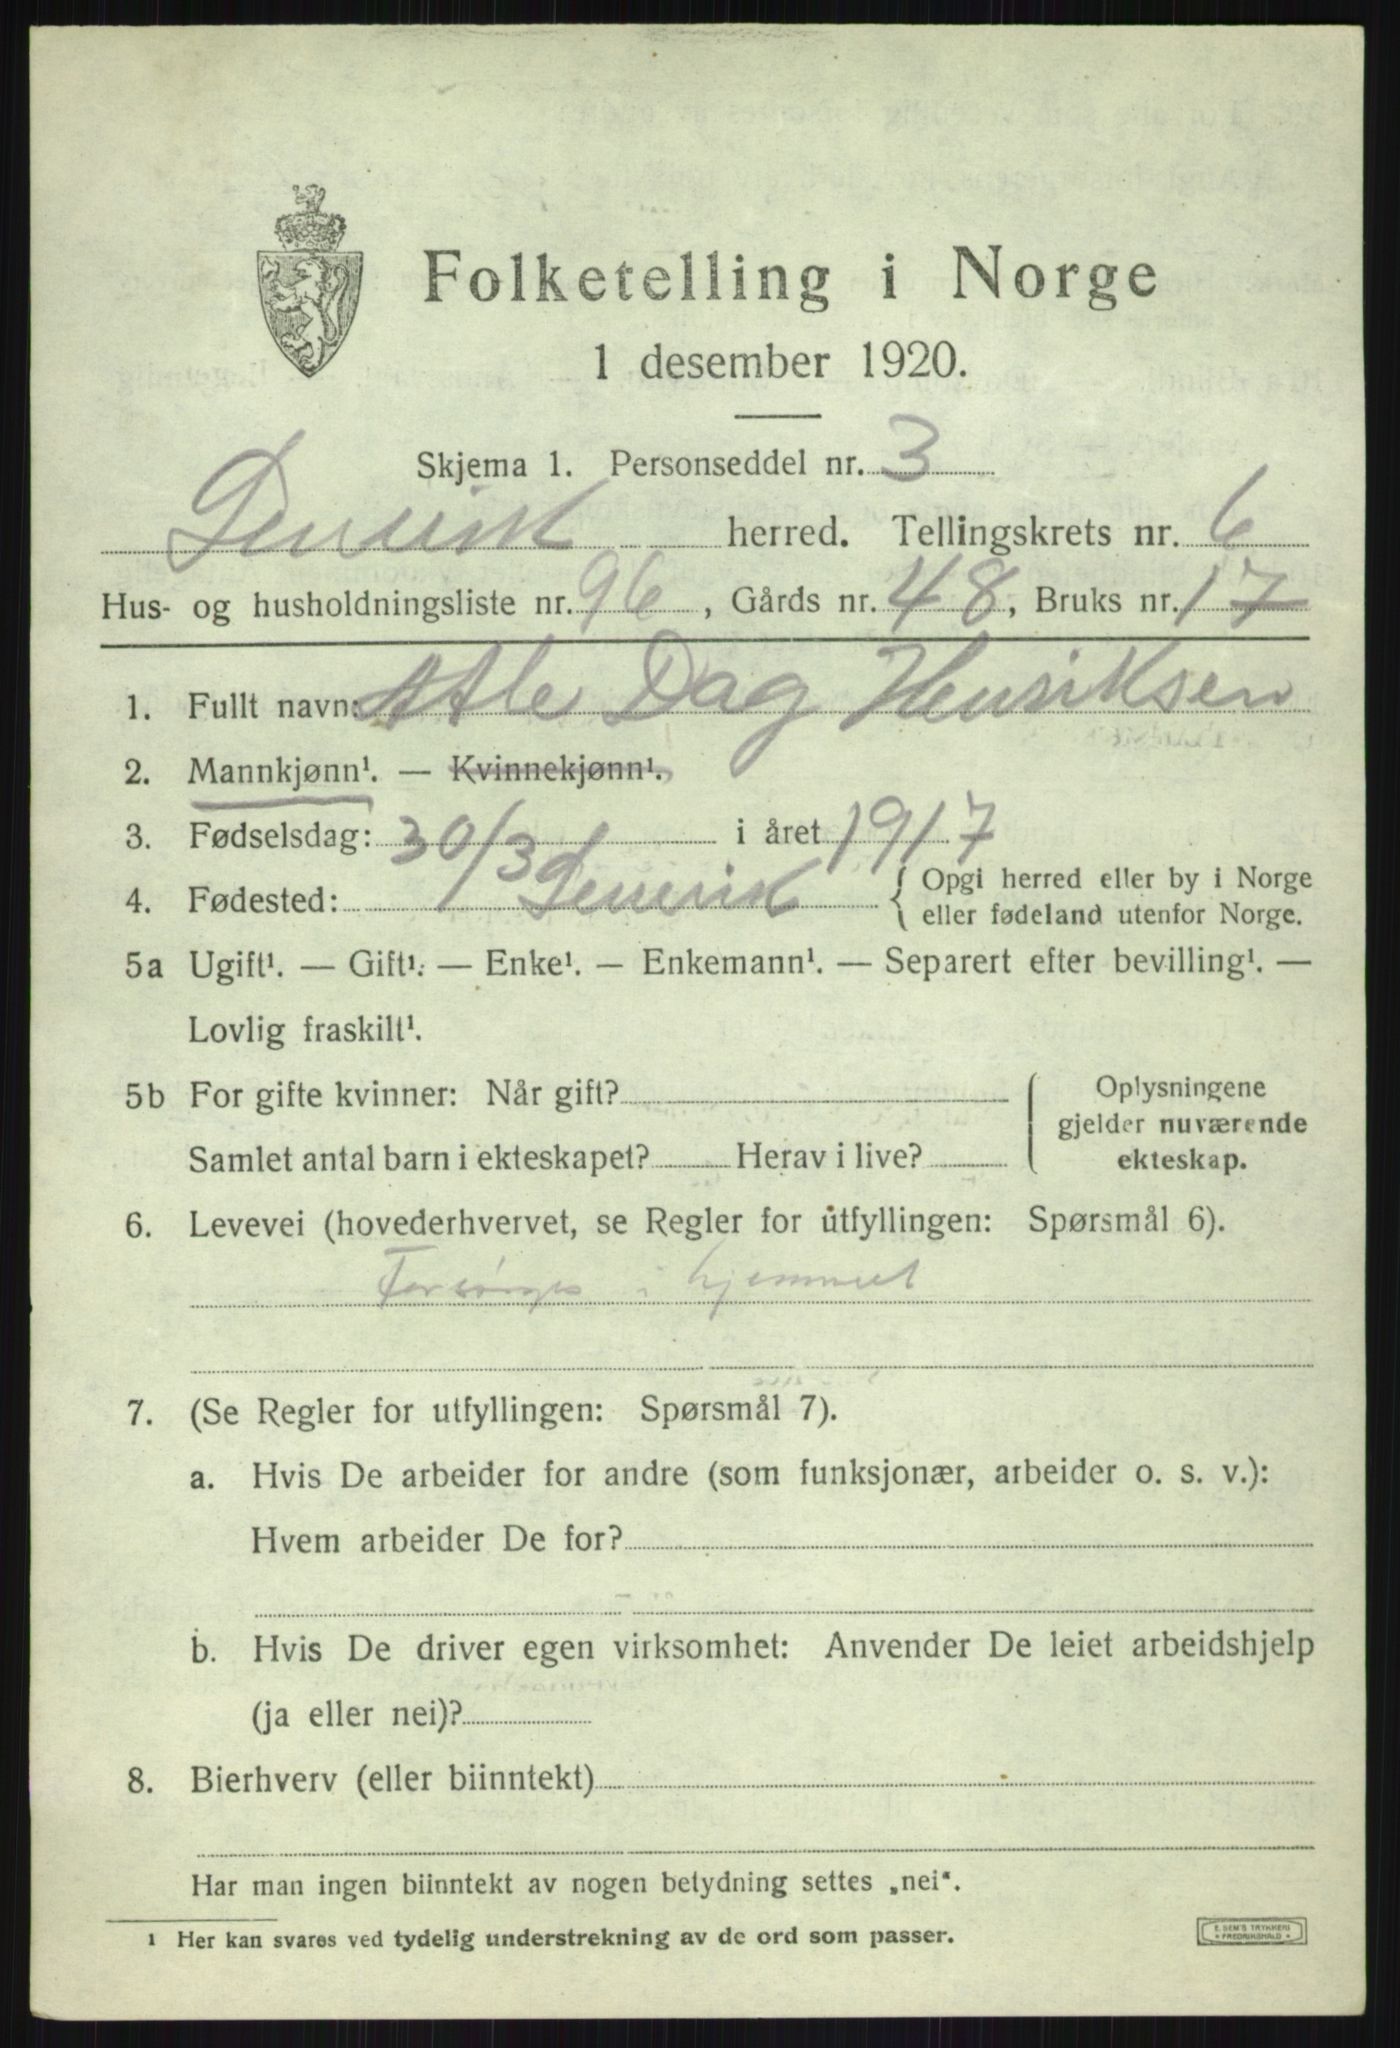 Folketelling i Norge
1 desember 1920.
Skjema 1. Personseddel nr. 3
Lenvik herred. Tellingskrets nr. 6
Hus- og husholdningsliste nr. 96, Gårds nr. 48, Bruks nr. 17
1. Fullt navn: Atle Dag Henriksen
2. Mannkjønn¹. — Kvinnekjønn¹.
3. Fødselsdag: 30/3 i året 1917
4. Fødested: Lenvik { Opgi herred eller by i Norge
eller fødeland utenfor Norge.
5a Ugift¹. — Gift¹. — Enke¹. — Enkemann¹. — Separert efter bevilling¹. —
Lovlig fraskilt¹.
5b For gifte kvinner: Når gift? { Oplysningene
gjelder nuværende
Samlet antal barn i ekteskapet? Herav i live? ekteskap.
6. Levevei (hovederhvervet, se Regler for utfyllingen: Spørsmål 6).
Forsørges i hjemmet
7. (Se Regler for utfyllingen: Spørsmål 7).
a. Hvis De arbeider for andre (som funksjonær, arbeider o. s. v.):
Hvem arbeider De for?
b. Hvis De driver egen virksomhet: Anvender De leiet arbeidshjelp
(ja eller nei)?
8. Bierhverv (eller biinntekt)
Har man ingen biinntekt av nogen betydning settes „nei“.
1 Her kan svares ved tydelig understrekning av de ord som passer.
E. SEM'S TRYKKERI
FREDRIKSHALD